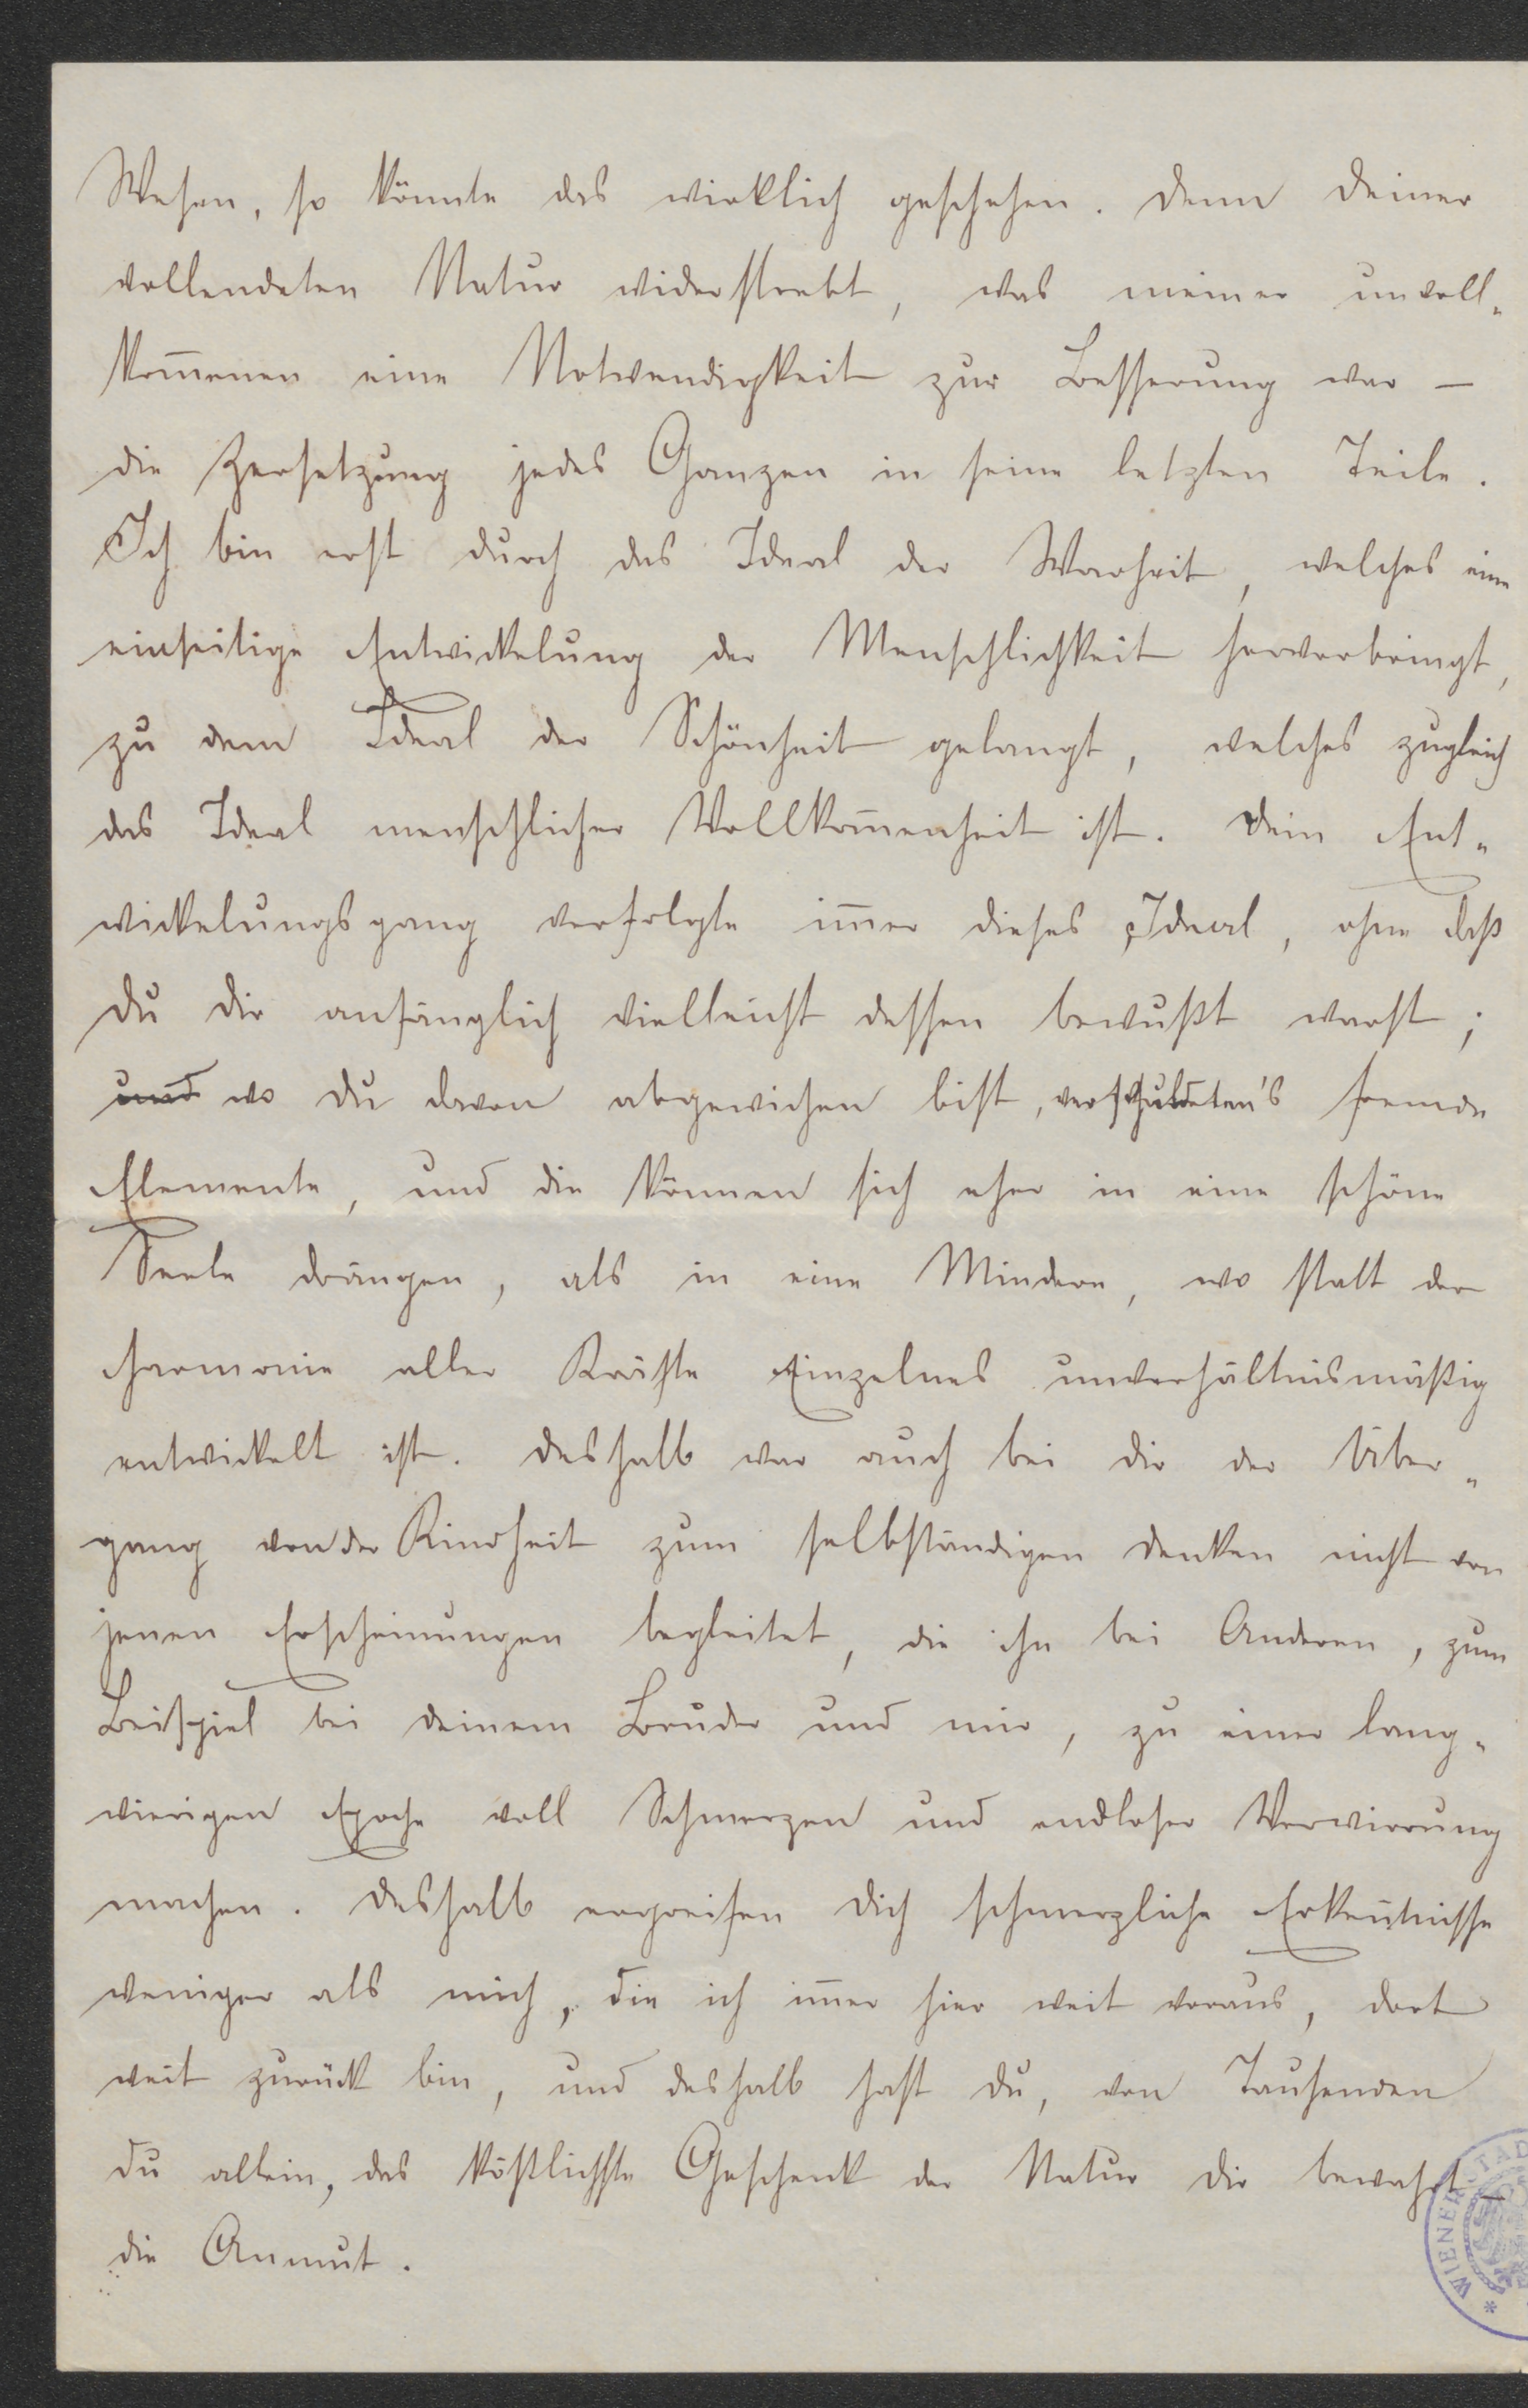 Wesen, so könnte das wirklich geschehen. Denn Deiner
vollendeten Natur widerstrebt, was meiner unvoll-
kom̅enen eine Notwendigkeit zur Besserung war —
die Zersetzung jedes Ganzen in seine letzten Teile.
Ich bin erst durch das Ideal der Warheit, welches eine
einseitige Entwickelung der Menschlichkeit hervorbringt,
zu dem Ideal der Schönheit gelangt, welches zugleich
das Ideal menschlicher Vollkom̅enheit ist. Dein Ent-
wickelungsgang verfolgte im̅er dieses Ideal, ohne daß
Du Dir anfänglich vielleicht dessen bewußt warst;
und wo Du davon abgewichen bist, verschuldeten's fremde
Elemente, und die können sich eher in eine schöne
Seele drängen, als in eine Mindere, wo statt der
Harmonie aller Kräfte Einzelnes unverhältnismäßig
entwickelt ist. Deshalb war auch bei Dir der Über-
gang von der Kindheit zum selbständigen Denken nicht von
jenen Erscheinungen begleitet, die ihn bei Anderen, zum
Beispiel bei Deinem Bruder und mir, zu einer lang-
wierigen Epoche voll Schmerzen und endloser Verwirrung
machen. Deshalb ergreifen Dich schmerzliche Erken̅tnisse
weniger als mich, die ich im̅er hier weit voraus, dort
weit zurück bin, und deshalb hast Du, von Tausenden
Du allein, das kößtlichste Geschenk der Natur Dir bewahrt –
die Anmut.
WIENER STAD